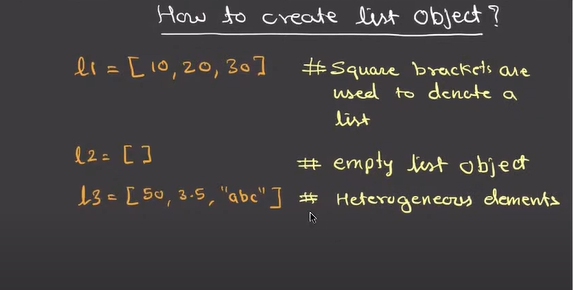 How to create list object?
l1 = [10, 20, 30] # Square brackets are
used to denote a
list
l2 = [ ] # empty list object
l3 = [50, 3.5, "abc"] # Heterogeneous elements